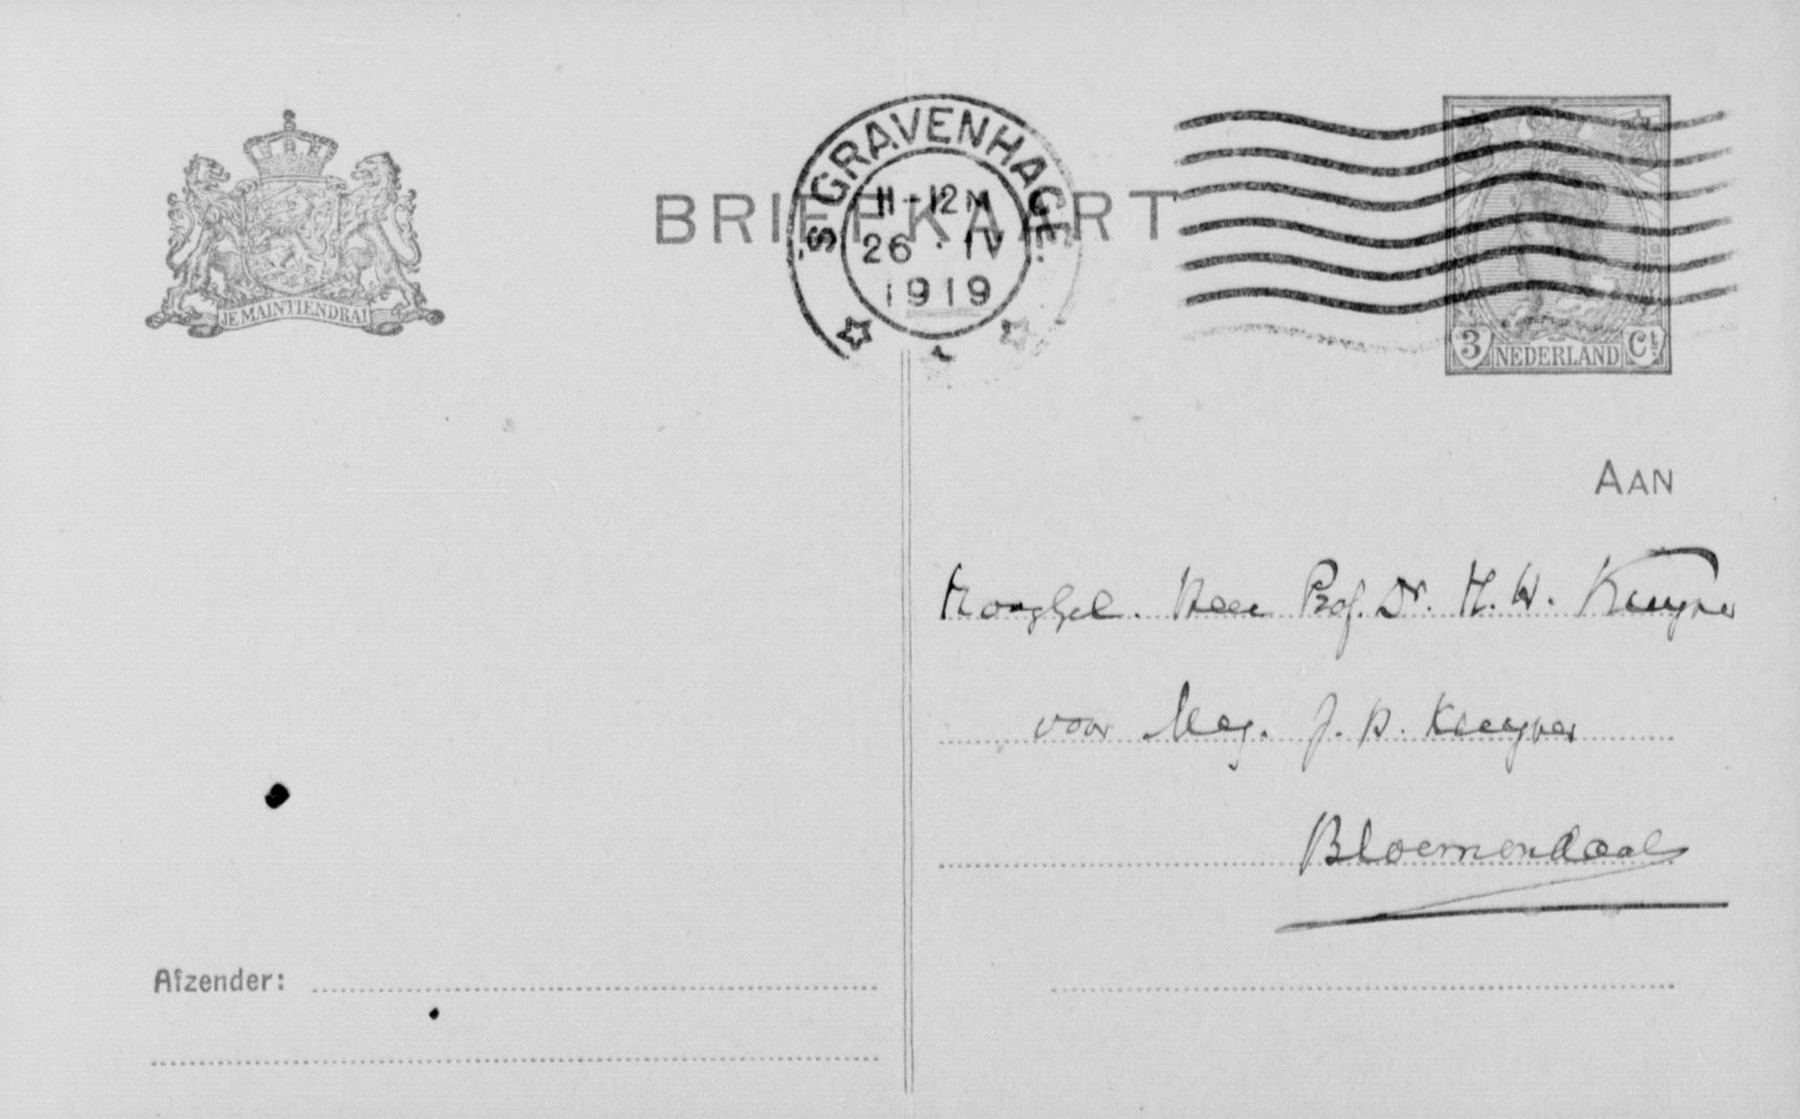 JE MAINTIENDRAI
BRIEFKAART
'S GRAVENHAGE.
11-12M
26 · IV
1919
3 NEDERLAND Ct
AAN
HoogGel. Heer Prof. Dr. H. H. Kuyper
voor Mej. J. H. Kuyper
Bloemendaal
Afzender: